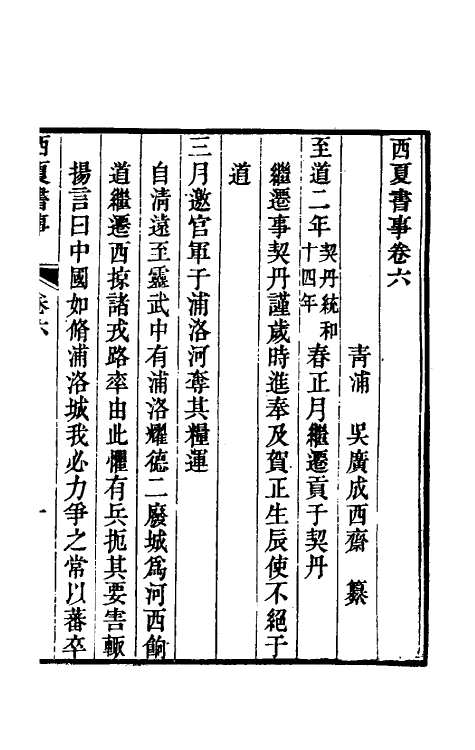 西夏書事卷六
青浦　吳廣成西齋　纂
至道二年契丹統和十四年春正月繼遷貢于契丹
繼遷事契丹謹歲時進奉及賀正生辰使不絕于
道
三月邀官軍于浦洛河奪其糧運
自清遠至靈武中有浦洛耀德二廢城爲河西餉
道繼遷西掠諸戎路率由此懼有兵扼其要害輙
揚言曰中國如脩浦洛城我必力爭之常以蕃卒
西夏書事　卷六　一